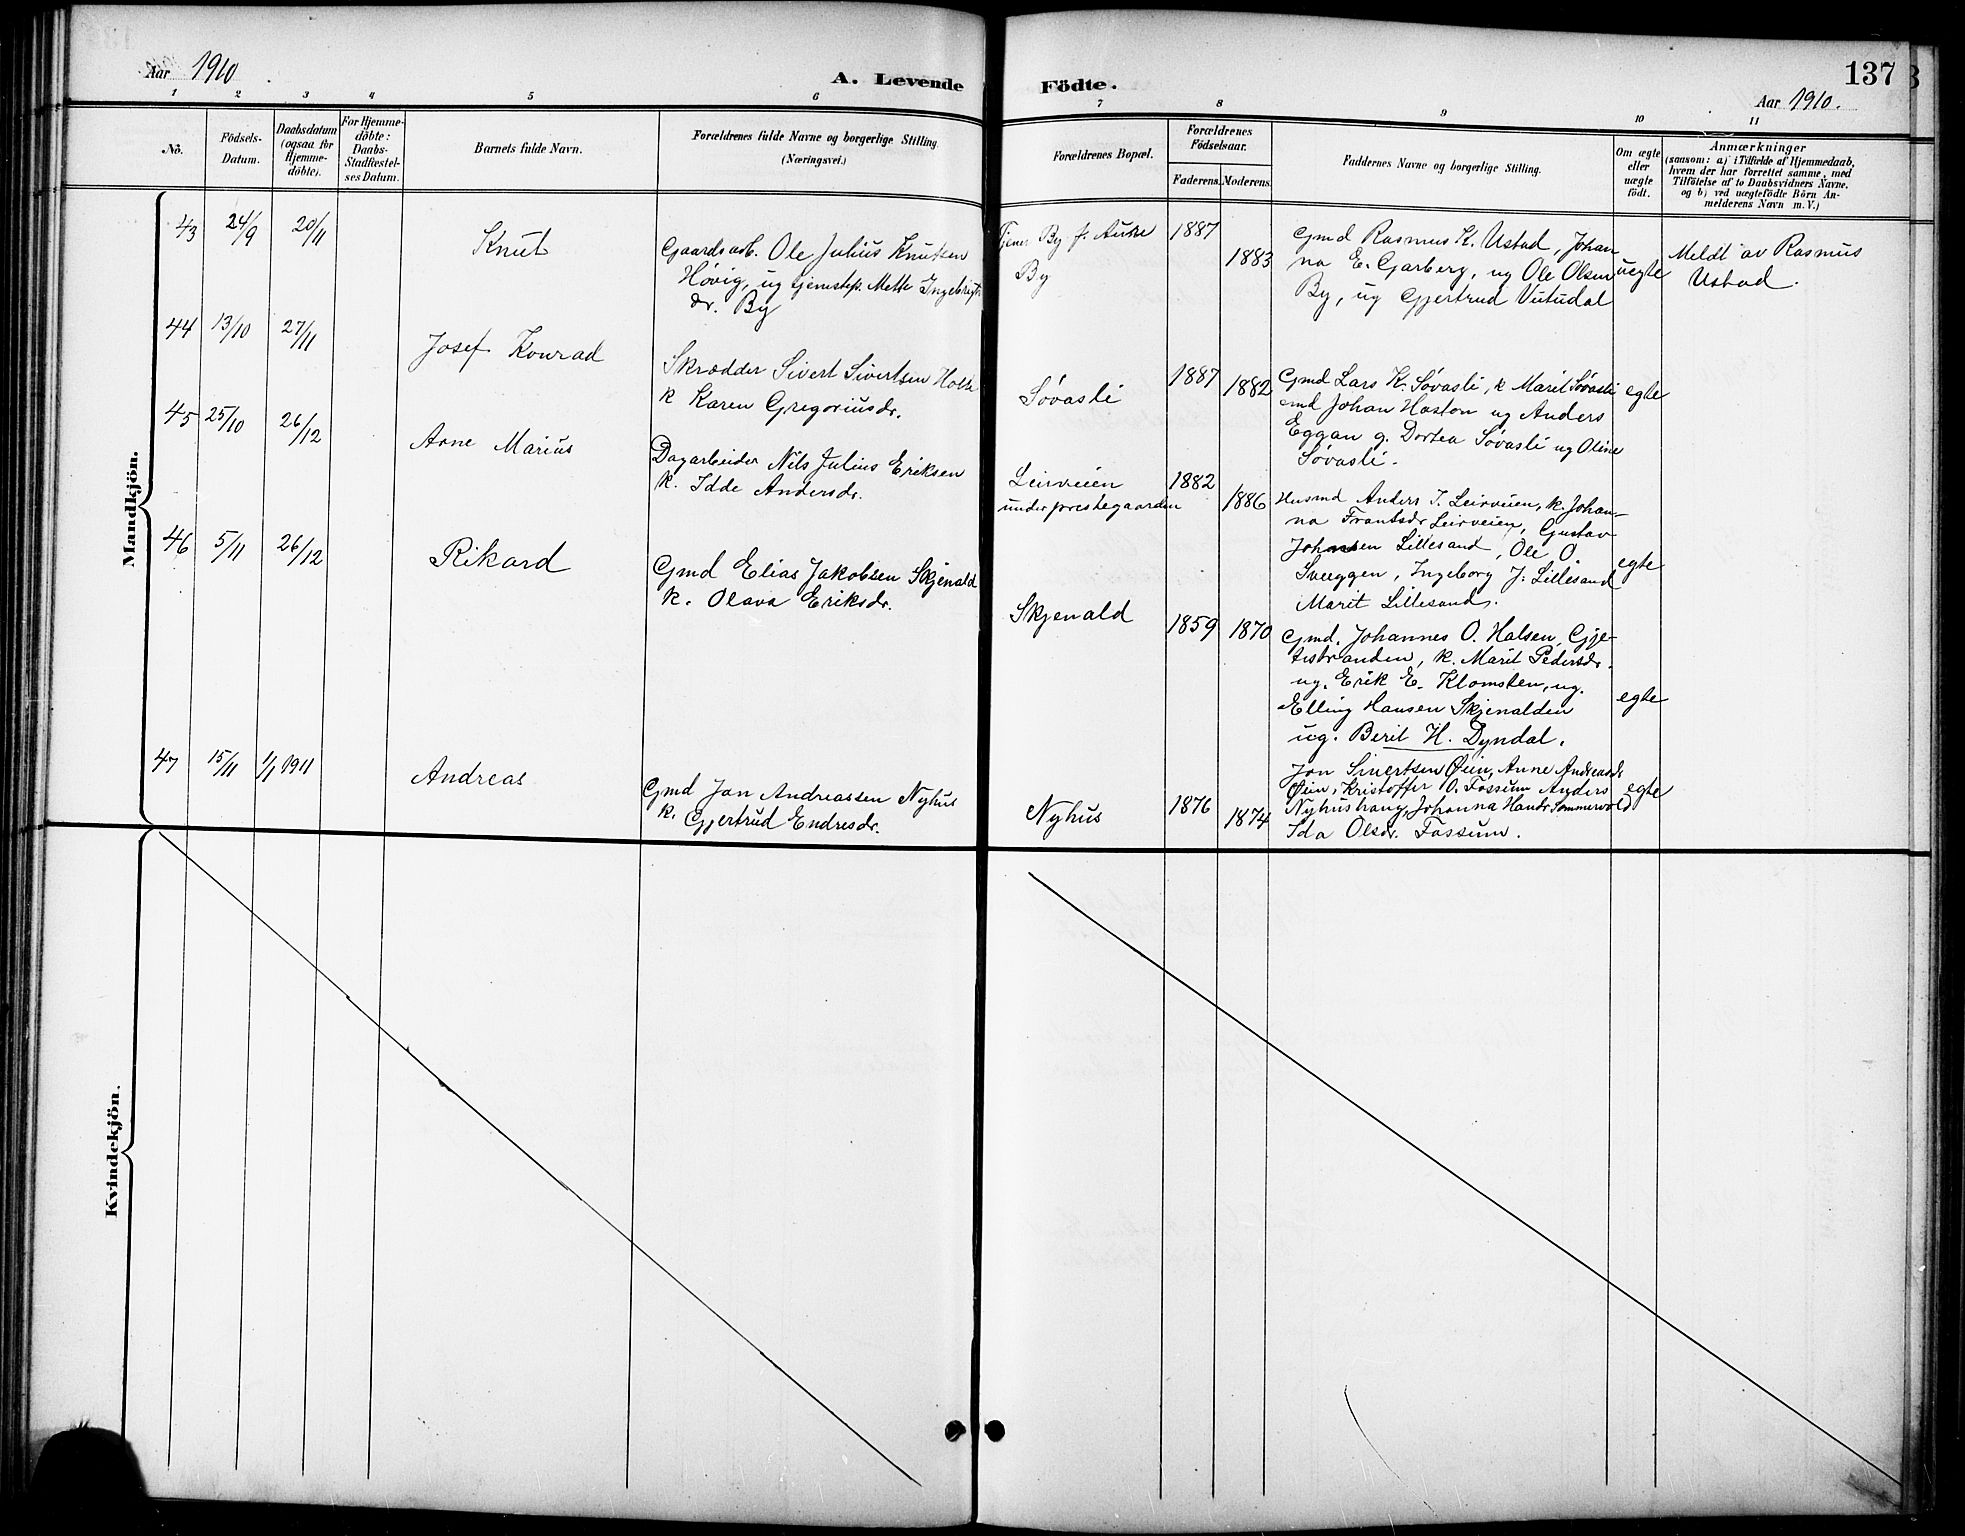 Aar 1910
A. Levende
Födte.
137
Aar 1910.
1 2 3 4 5 6 7 8 9 10 11
No.
Födsels-
Datum.
Daabsdatum
(ogsaa for
Hjemme-
döbte).
For Hjemme-
döbte:
Daabs-
Stadfæstel-
ses Datum.
Barnets fulde Navn.
Forældrenes fulde Navne og borgerlige Stilling.
(Næringsvei.)
Forældrenes Bopæl.
Forældrenes
Födselsaar.
Faderens. Moderens.
Faddernes Navne og borgerlige Stilling.
Om ægte
eller
uægte
født.
Anmærkninger
(saasom: a) i Tilfælde af Hjemmedaab,
hvem der har forrettet samme, med
Tilföielse af to Daabsvidners Navne.
og b) ved uægtefödte Börn An-
melderens Navn m. V.)
Mandkjön.
43 24/9 20/11
Knut
Gaardsarb. Ole Julius Knutsen
Høvig, ug tjenestep. Mette Ingebrigts
dr. By
Tjener By f. Aune
By
1887
1883
Gmd Rasmus K. Ustad, Johan-
na E. Garberg, ug Ole Olsen
By, ug Gjertrud Vutudal
uegte
Meldt av Rasmus
Ustad.
44 13/10 27/11
Josef Konrad
Skrædder Sivert Sivertsen Holte
k Karen Gregoriusdr.
Søvasli
1887
1882
Gmd Lars K. Søvasli, k Marit Søvasli
gmd Johan Haston ug Anders
Eggan g. Dortea Søvasli ug Oline
Søvasli.
egte
45 25/10 26/12
Arne Marius
Dagarbeider Nils Julius Eriksen
k. Idde Andersdr.
Leirveien
under prestegaarden
1882
1886
Husmd Anders J. Leirveien, k. Johan-
na Frantsdr Leirveien, Gustav
Johansen Lillesand, Ole O.
Sveeggen, Ingeborg J. Lillesand
Marit Lillesand.
egte
46 5/11 26/12
Rikard
Gmd Elias Jakobsen Skjenald
k. Olava Eriksdr.
Skjenald
1859
1870
Gmd. Johannes O. Halsen, Gje-
tistranden, k. Marit Pedersdr.
ug. Erik E. Klomsten, ug.
Elling Hansen Skjenalden
ug. Berit H. Dyndal.
egte
47 15/11 1/1 1911
Andreas
Gmd Jon Andreassen Nyhus
k. Gjertrud Endresdr.
Nyhus
1876
1874
Jon Sivertsen Øien, Anne Andreasdr
Øien, Kristoffer O. Fossum Anders
Nyhushaug, Johanna Hansdr Sommervold
Ida Olsdr. Fossum.
egte
Kvindekjön.